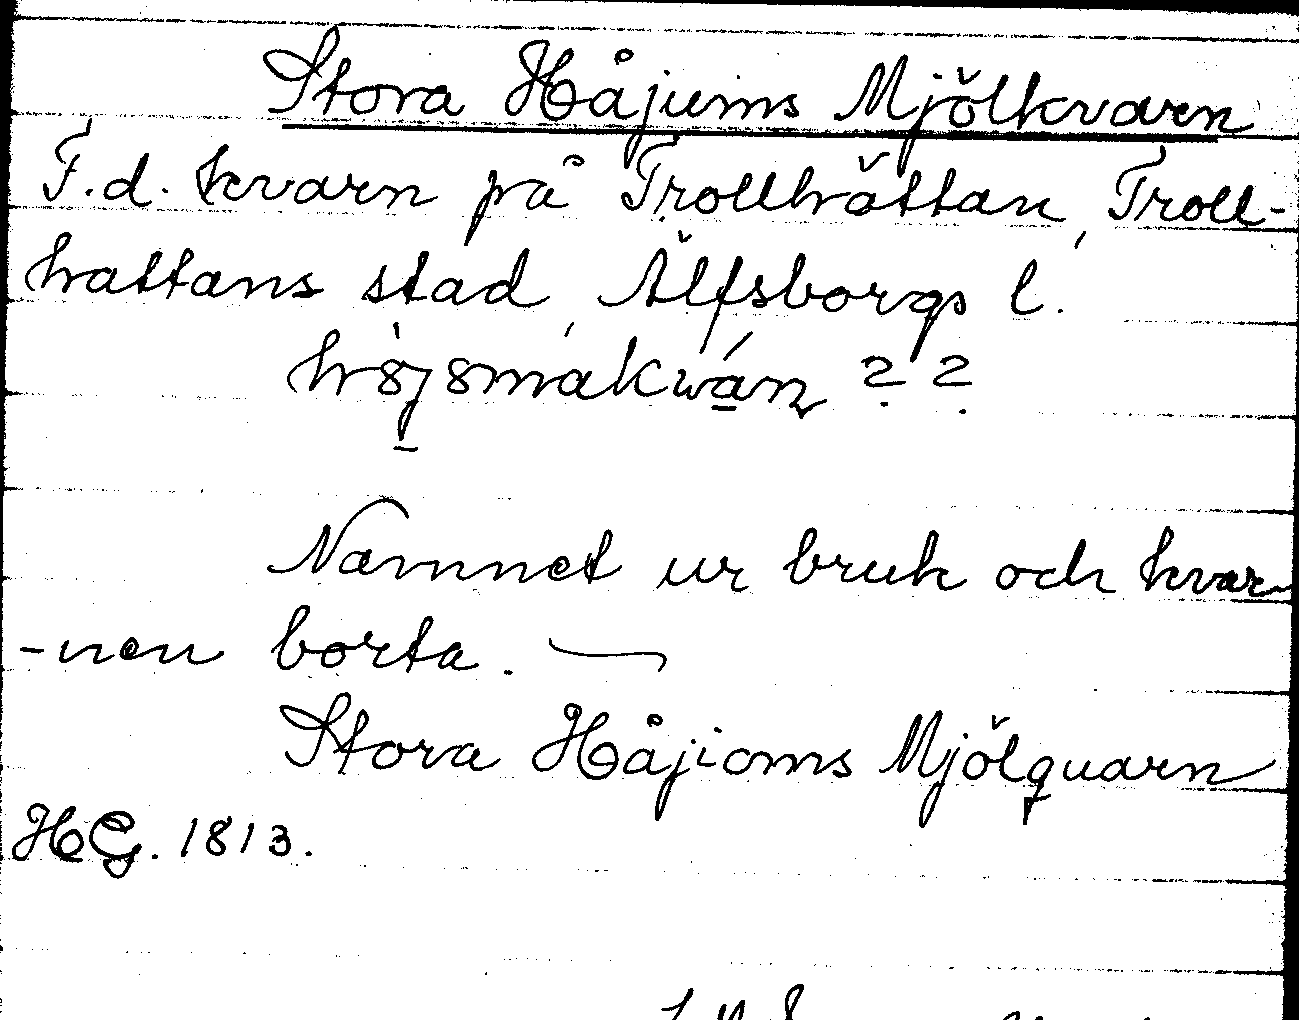 Stora Håjums Mjölkvarn
F.d. kvarn på Trollhättan, Troll-
hattans stad, Älfsborgs l.
Namnet ur bruk och kvar-
-nen borta.
Stora Håjioms Mjölquarn
HG. 1813.